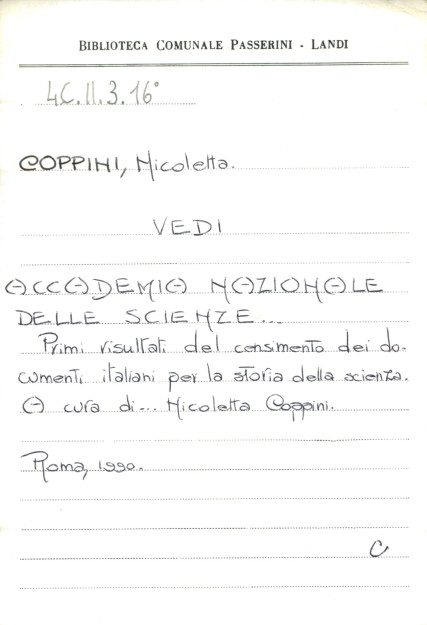 BIBLIOTECA COMUNALE PASSERINI - LANDI
4C.II.3.16°
COPPINI, Nicoletta.
VEDI
ACCADEMIA NAZIONALE
DELLE SCIENZE...
Primi risultati del censimento dei do-
cumenti italiani per la storia della scienza.
A cura di... Nicoletta Coppini.
Roma, 1990.
C